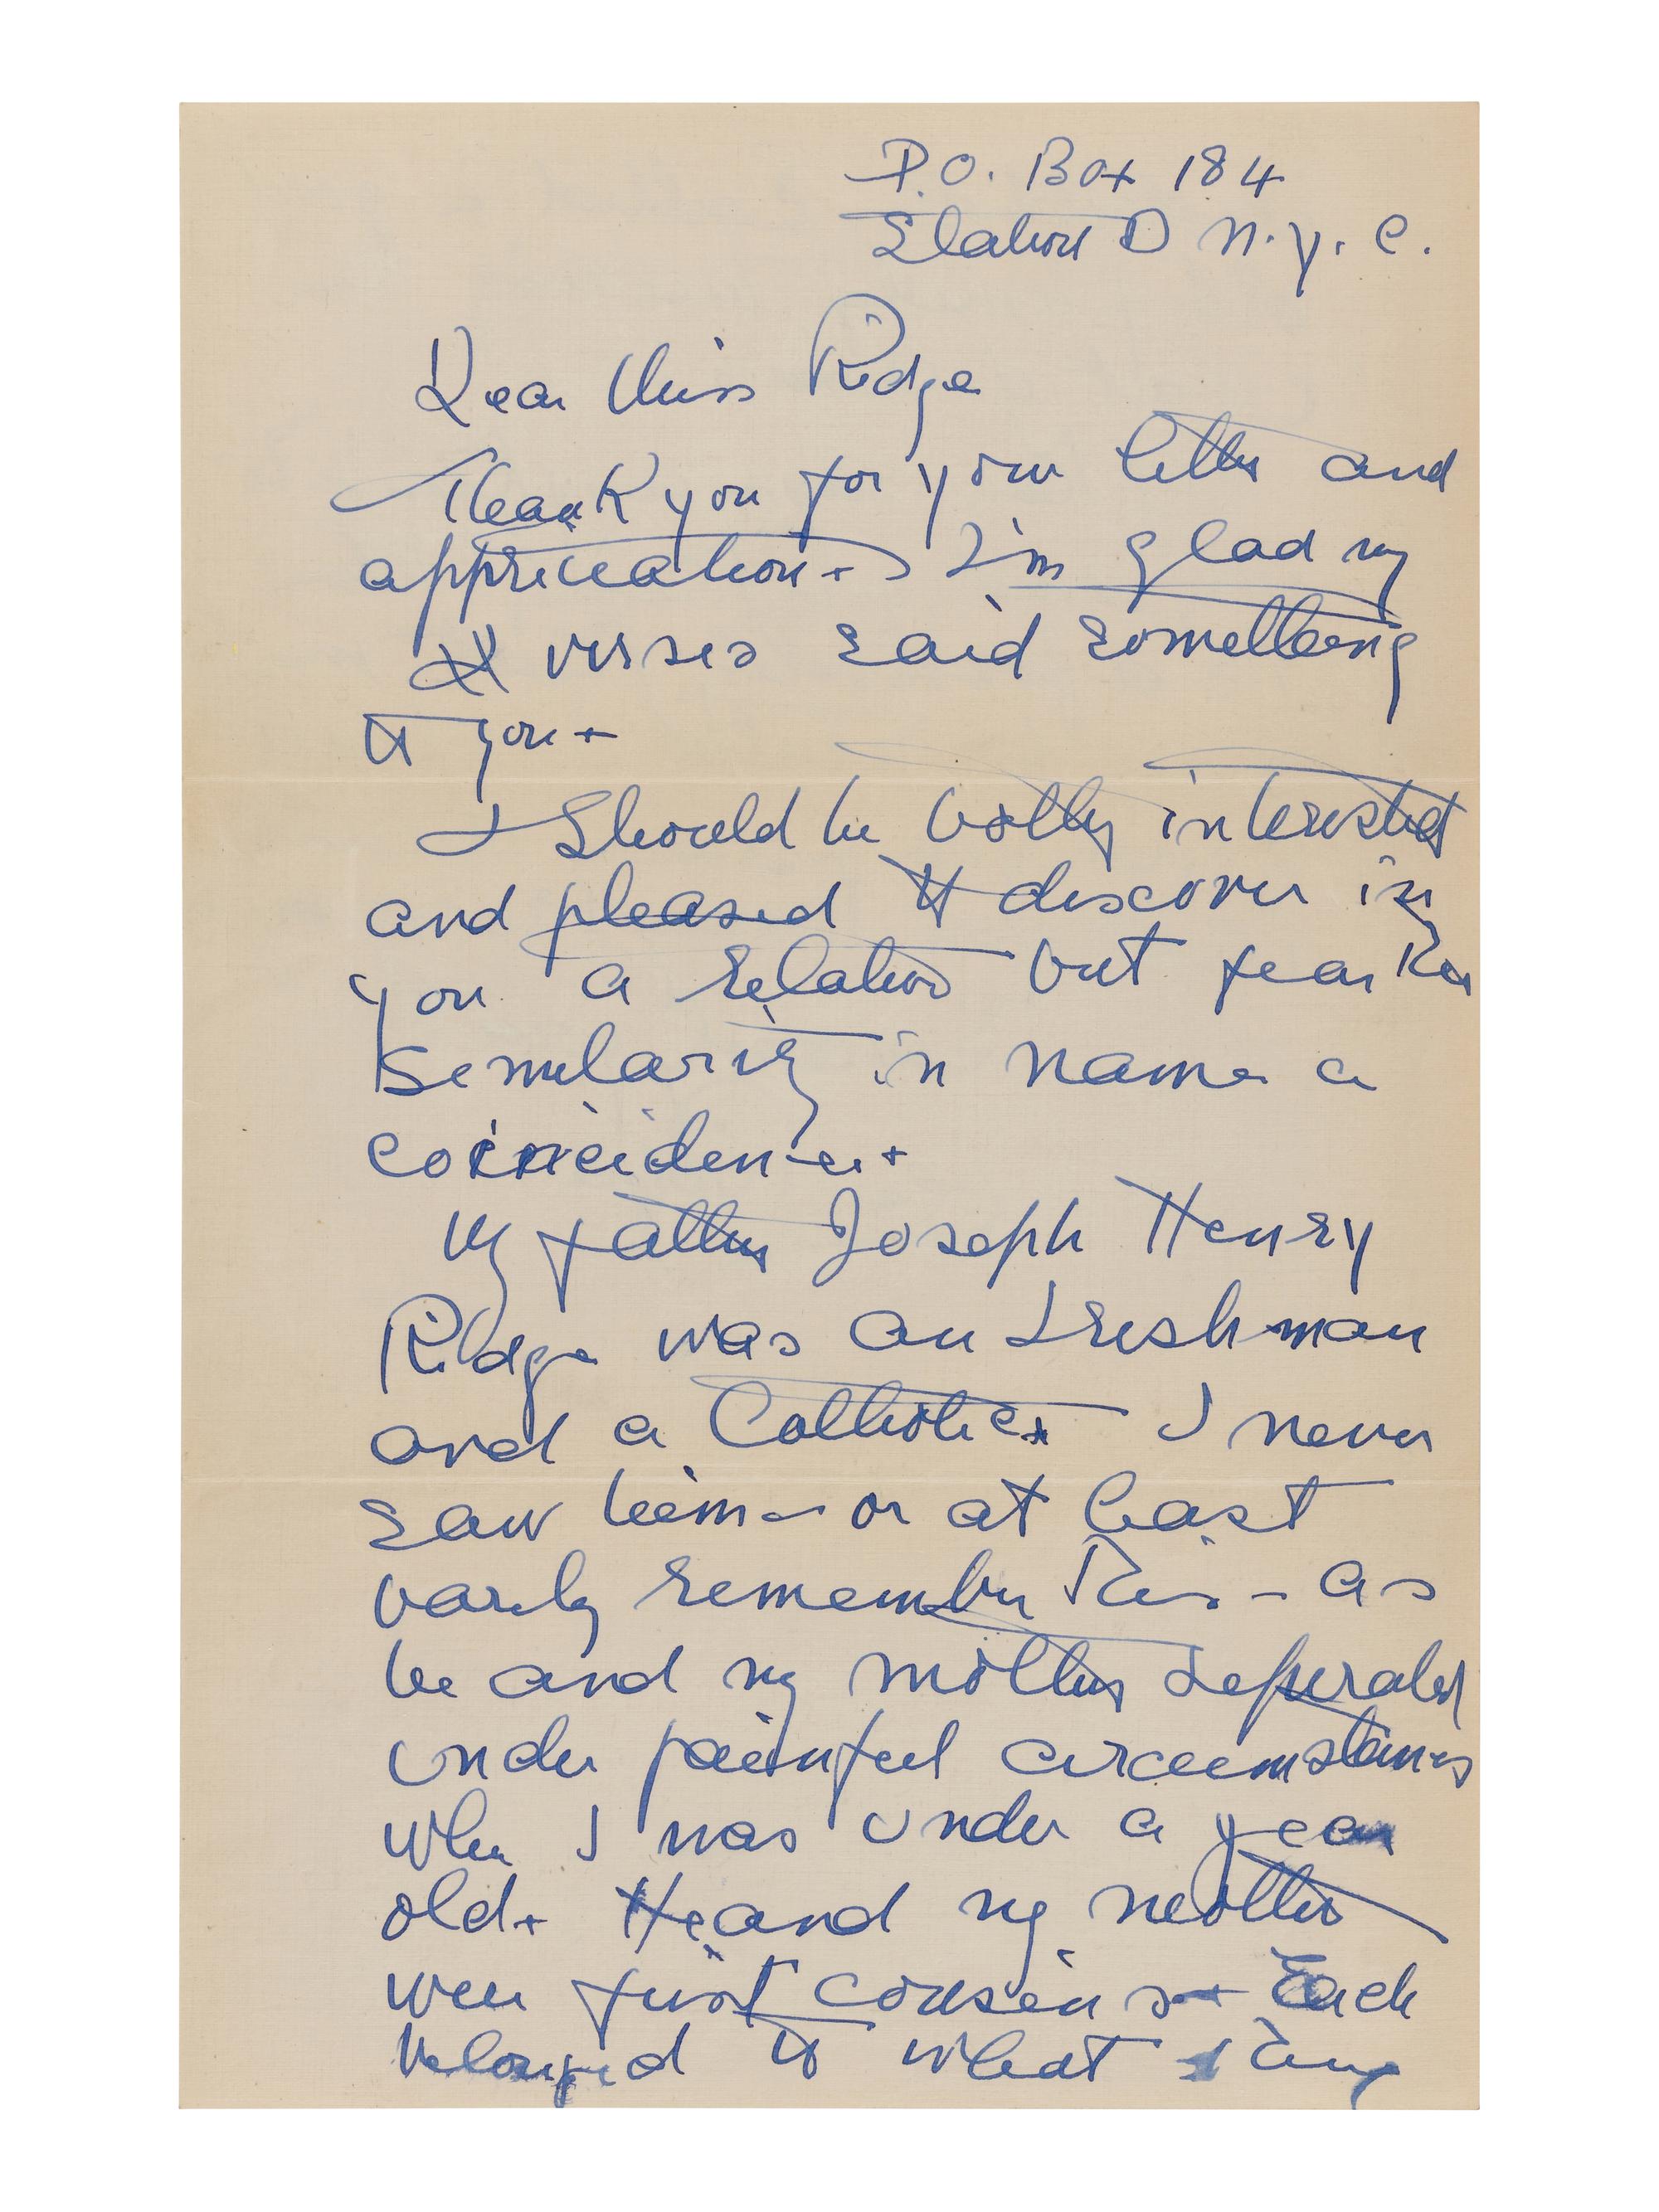 P.O. Box 184
Station D N.Y.C.
Dear Miss Ridge
Thank you for your letter and
appriciation. I'm glad my
verses said something
to you.
I should be bothy interested
and pleased to discover in
you a relative but fear the
similarity in name a
coincidence.
My father Joseph Henry
Ridge was an Irishman
and a Catholic. I never
saw him - or at least
barely remember him - as
he and my mother seperated
under painful circumstances
when I was under a year
old. He and my mother
were first cousins. Each
belonged to what